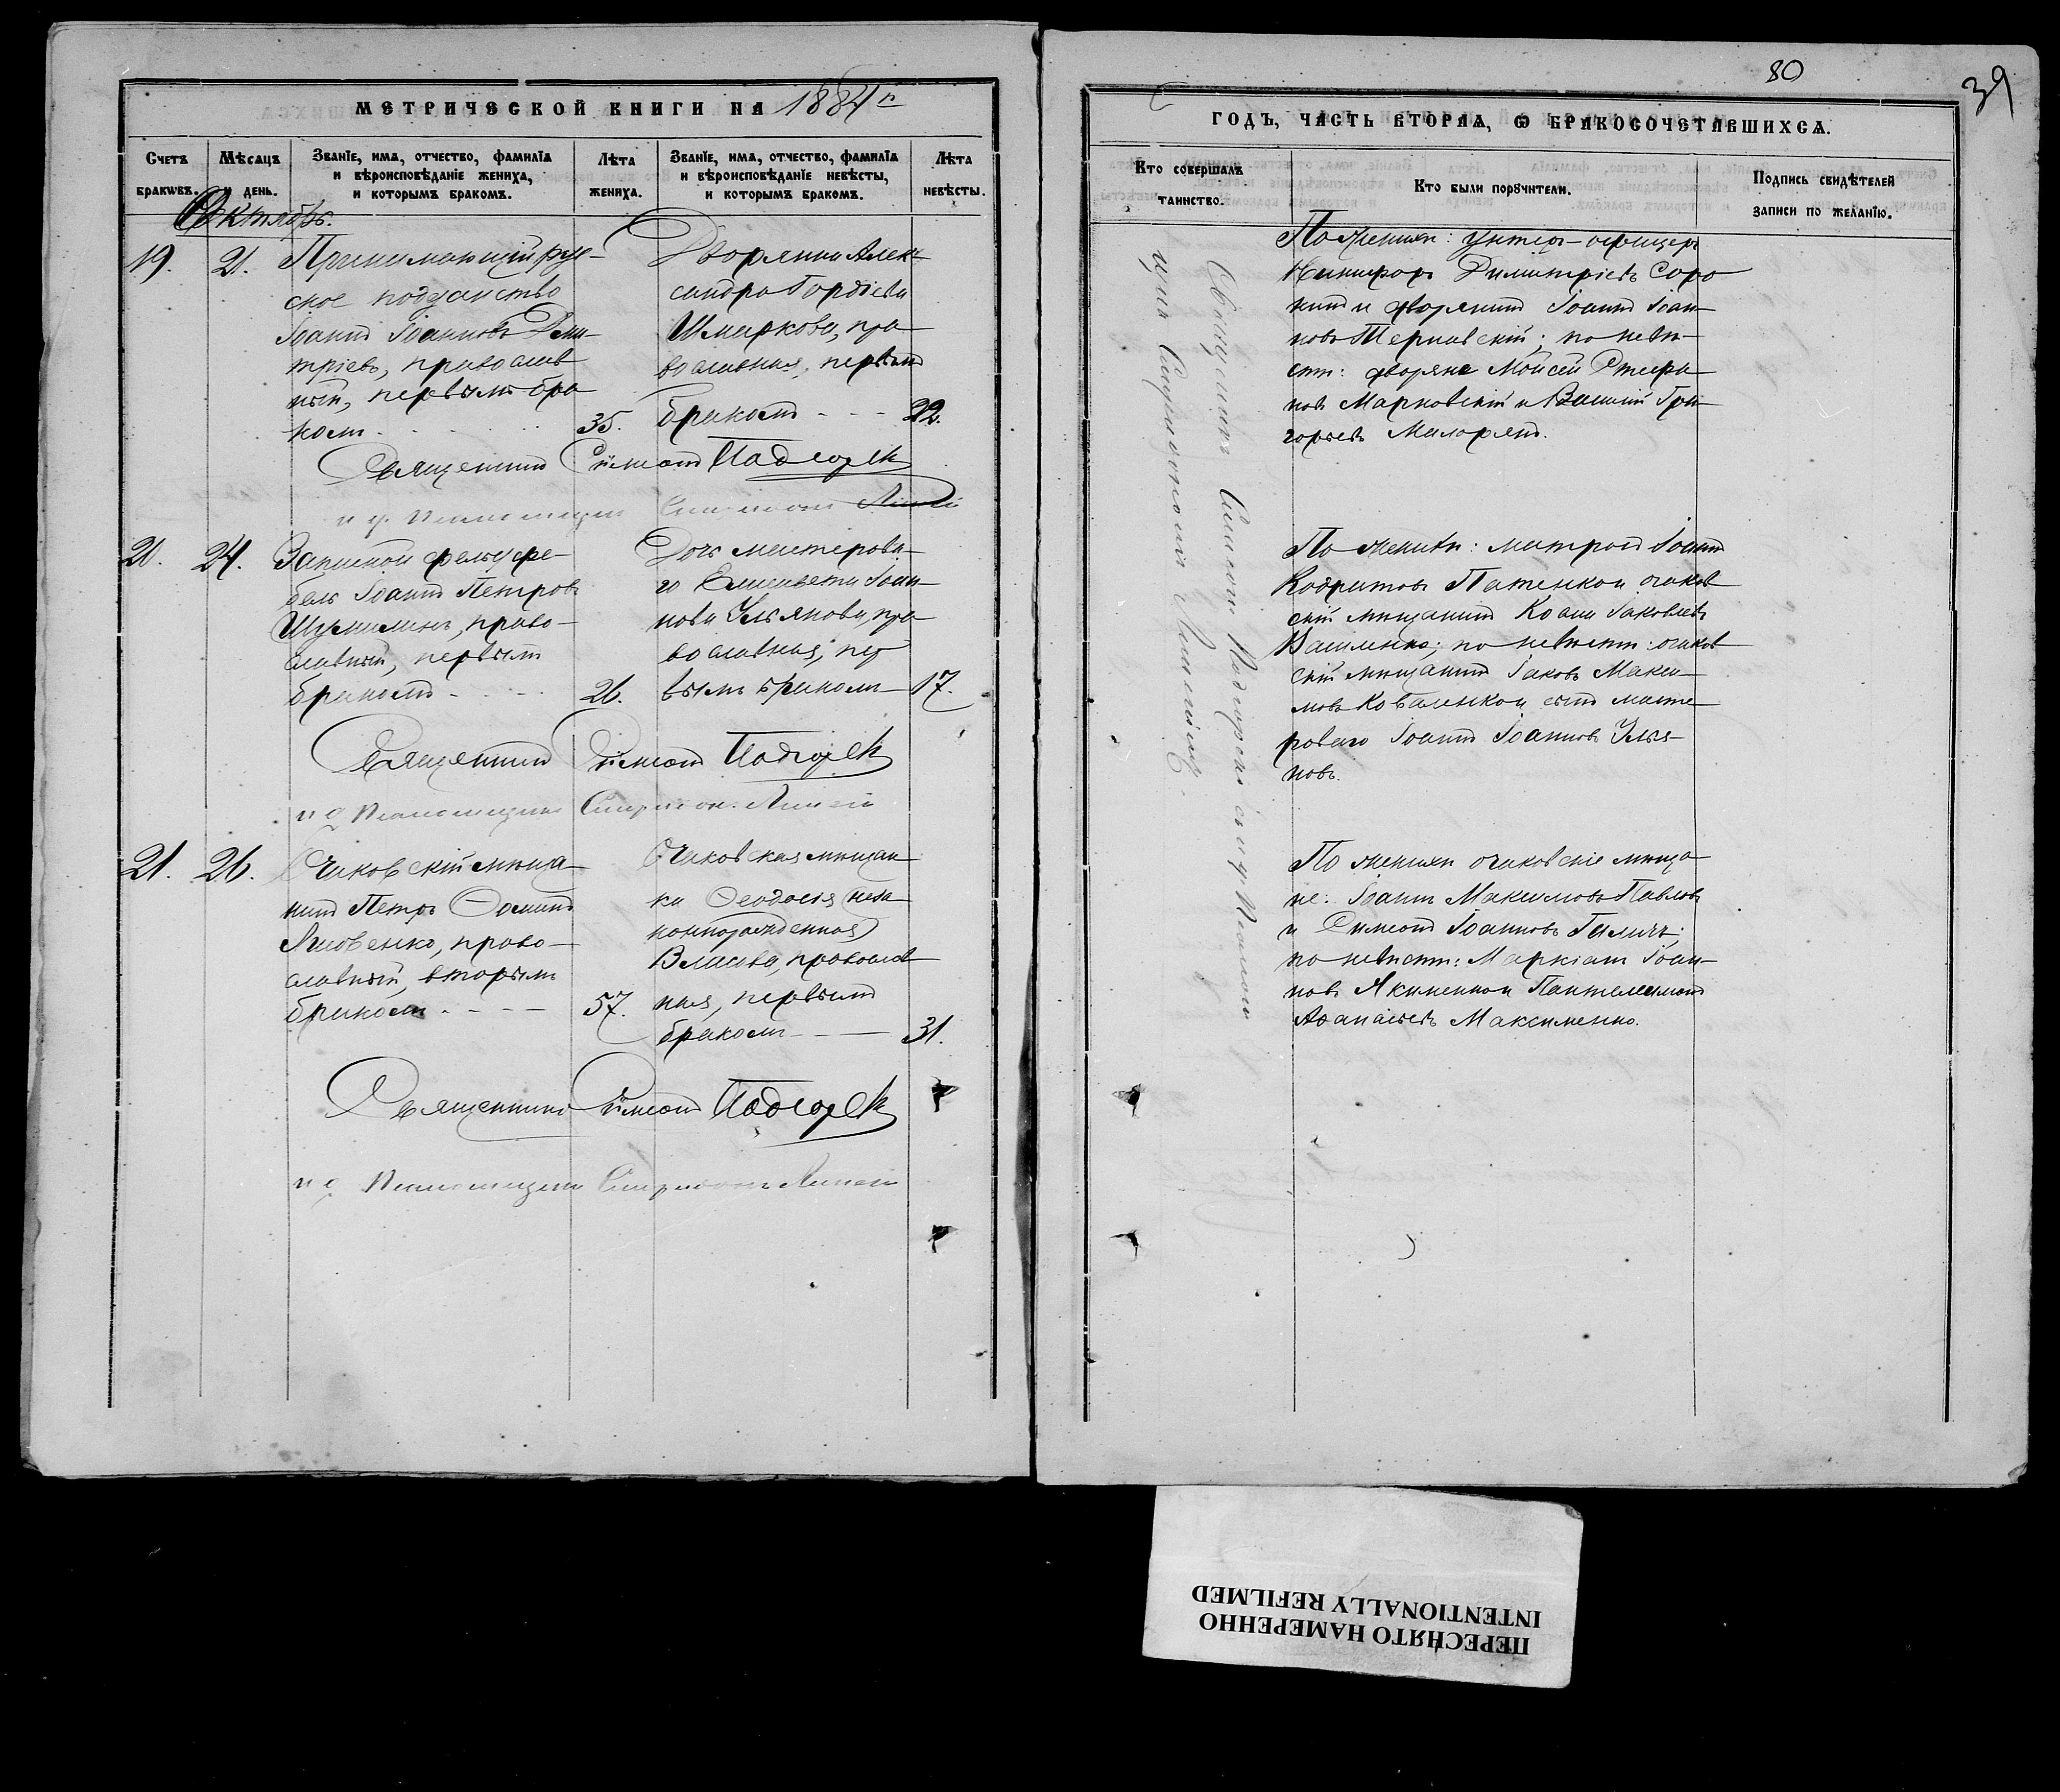 МЕТРИЧЕСКОЙ КНИГИ НА 1884 г.
Счетъ браковъ.
Мѣсяцъ и день.
Званіе, имя, отчество, фамилія
и вѣроисповѣданіе жениха,
и которымъ бракомъ.
Лѣта
жениха.
Званіе, имя, отчество, фамилія
и вѣроисповѣданіе невѣсты,
и которымъ бракомъ.
Лѣта
невѣсты.
Октябрь.
19.
21.
Принимающій рус-
ское подданство
Іоаннъ Іоанновъ Дими-
тріевъ, православ
ный, первымъ бра
комъ
35.
Дворянка Алек-
сандра Гордіева
Шмаркова, пра-
вославная, первымъ
бракомъ
22.
Священникъ Сѵмеонъ
и д. Псаломщика
20.
24.
Запасной фельдфе-
бель Іоаннъ Петровъ
Шумилинъ, право-
славный, первымъ
бракомъ
26.
Дочь мастерова-
го Елисавета Іоан-
нова Ульянова, пра-
вославная, пер
вымъ бракомъ
17.
Священникъ Сѵмеонъ
и д. Псаломщика
21.
26.
Очаковскій мѣща-
нинъ Петръ Ѳоминъ
Яковенко, право-
славный, вторымъ
бракомъ
57.
Очаковская мѣщан
ка Ѳеодосія (неза-
коннорожденная)
Власова, православ
ная, первымъ
бракомъ
31.
Священникъ Сѵмеонъ
и д. Псаломщика
80
39
ГОДЪ, ЧАСТЬ ВТОРАЯ, Ѡ БРАКОСОЧЕТАВШИХСЯ.
Кто совершалъ
таинство.
Кто были поручители.
Подпись свидѣтелей
записи по желанію.
Священникъ Симеонъ
По женихѣ: унтеръ-офицеръ
Никифоръ Димитріевъ Соро
кинъ и дворянинъ Іоаннъ Іоан-
новъ Терновскій; по невѣ-
стѣ: дворяне Моисей Стефа-
новъ Марковскій и Василій Гри-
горьевъ
По женихѣ: матросъ Іоаннъ
очаков
скій мѣщанинъ Іаковлевъ
Василенко; по невѣстѣ: очаков
скій мѣщанинъ Іаковъ Макси-
мовъ Коваленко и сынъ масте
роваго Іоаннъ Іоанновъ Улья-
новъ.
По женихѣ очаковскіе мѣща-
не: Іоаннъ Максимовъ Павловъ
и Симеонъ Іоанновъ
по невѣстѣ: Маркіанъ Іоан-
новъ Якименко и Пантелеимонъ
Аѳанасіевъ Максименко.
ПЕРЕСНЯТО НАМЕРЕННО
INTENTIONALLY REFILMED